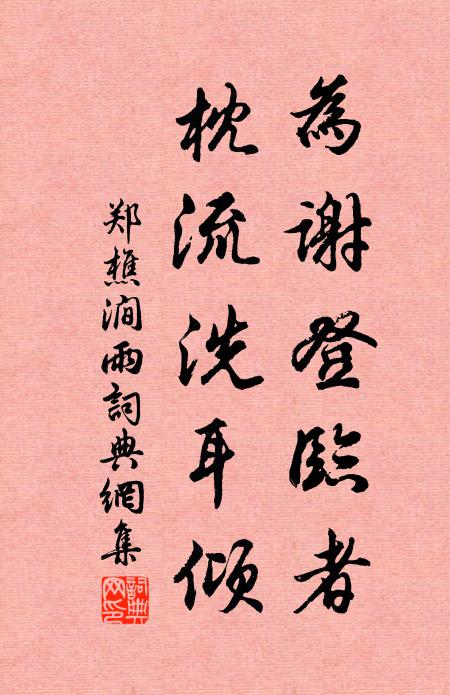 為謝登臨者
枕流洗耳傾
郑樵澗雨詞典網集
詞典网印